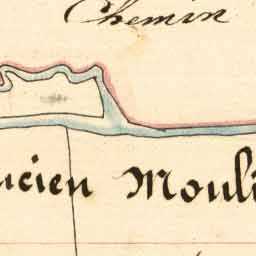 Chemin
ncien Mouli